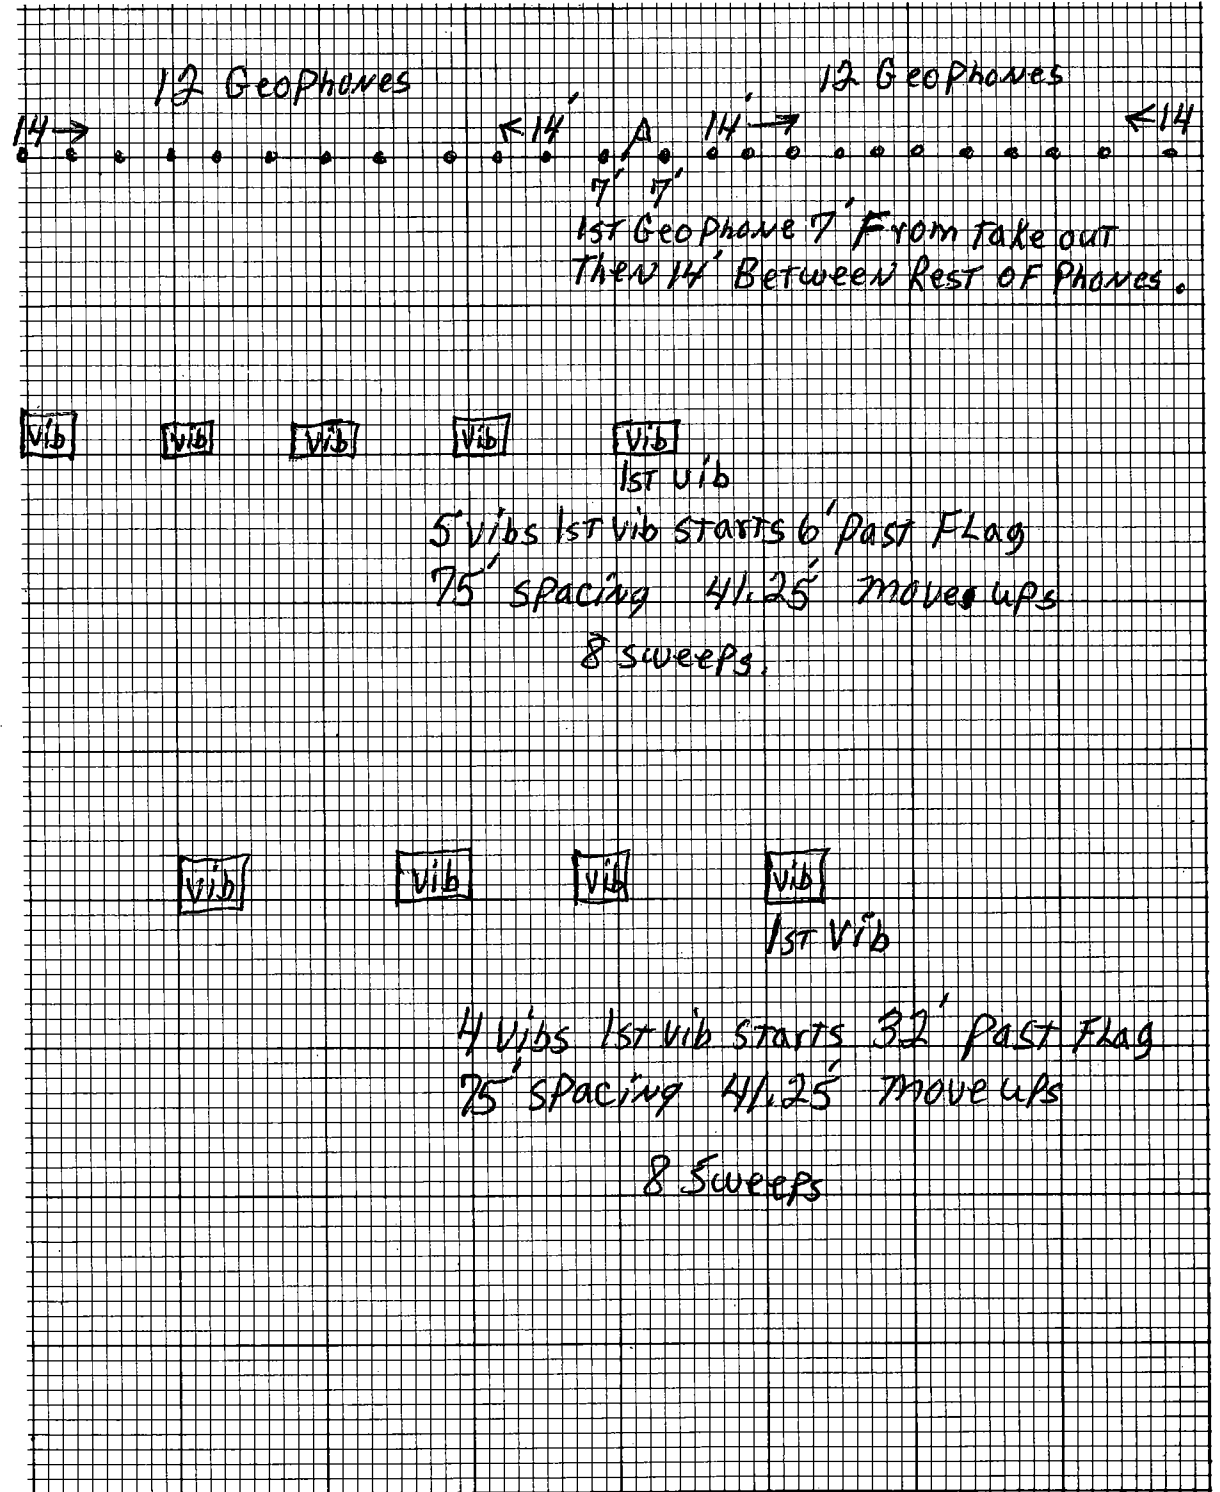 12 GeoPhones 12 GeoPhones
14' → ← 14' Δ 14' → ← 14
7' 7'
1ST GeoPhone 7' From Take out
Then 14' Between Rest OF Phones.
Vib Vib Vib Vib Vib
1ST Vib
5 Vibs 1ST Vib STarTs 6' Past FLag
75' SPacing 41.25' move ups
8 sweeps.
Vib Vib Vib Vib
1ST Vib
4 Vibs 1ST Vib STarTs 32' Past FLag
75' SPacing 41.25' move ups
8 Sweeps